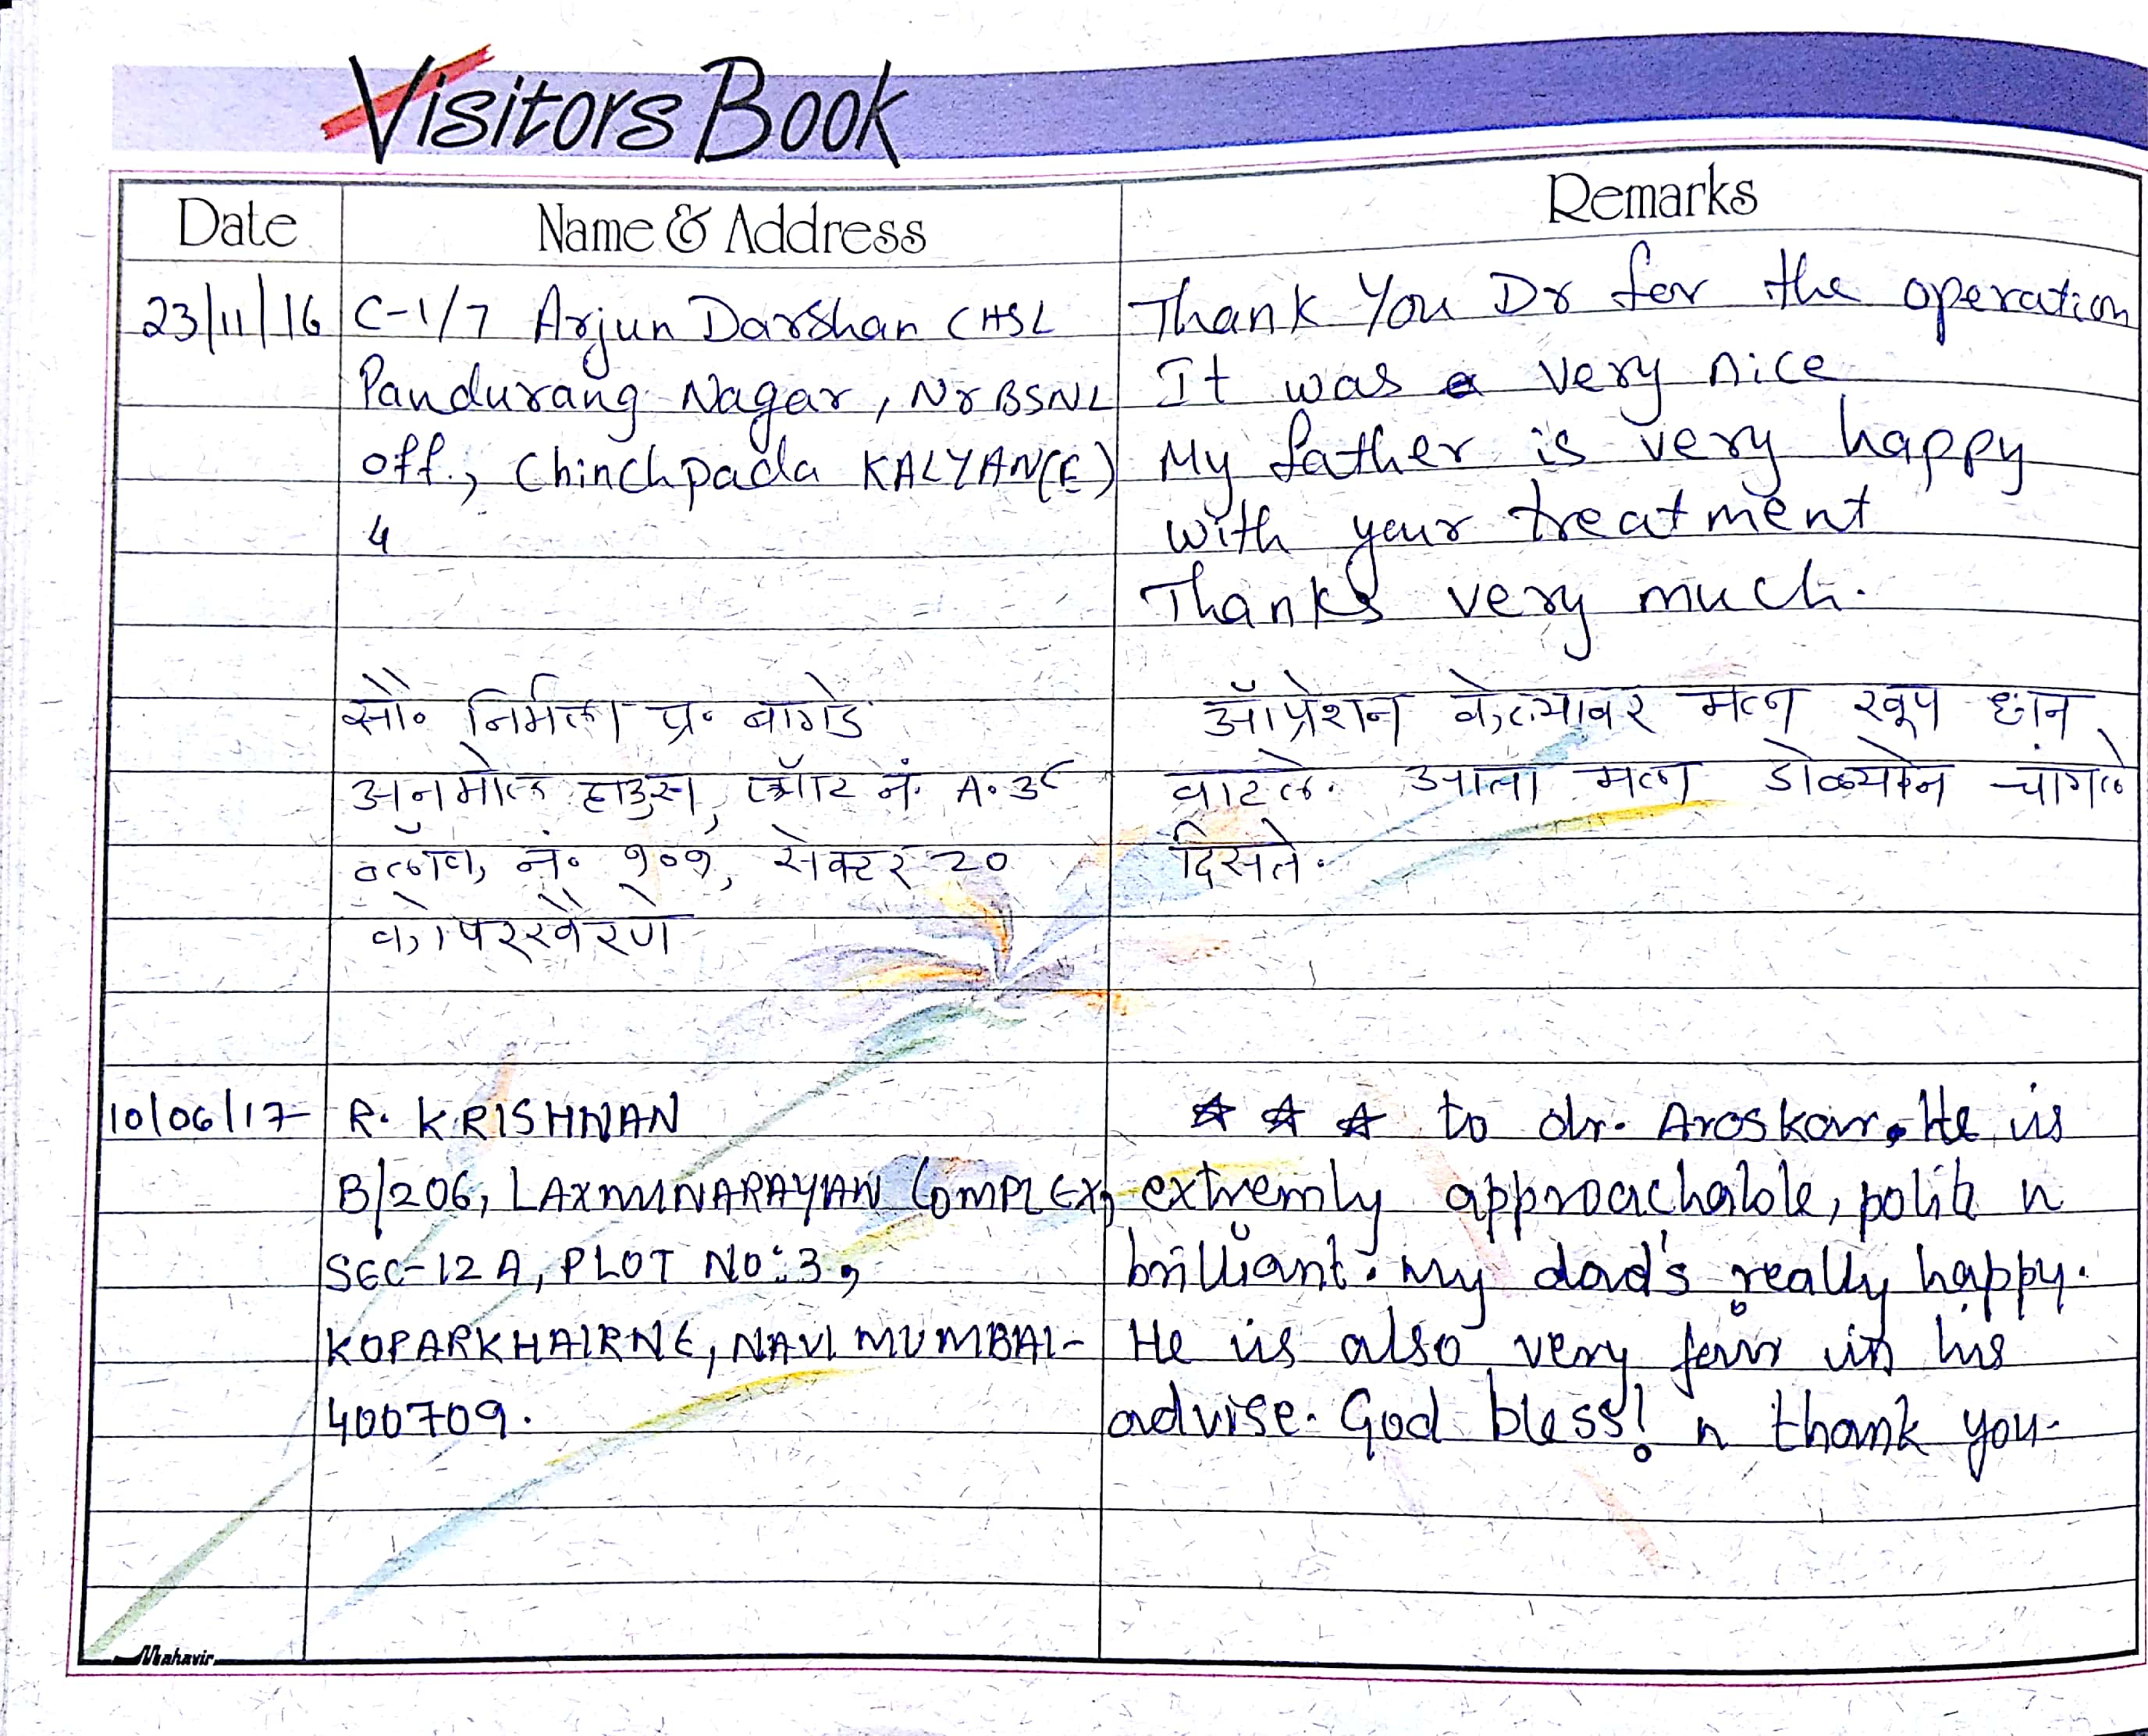 Visitors Book
Date Name & Address Remarks
23/11/16 C-1/7 Arjun Darshan CHSL Thank You Dr for the operation
Pandurang Nagar, Nr BSNL It was a very nice
off., Chinchpada KALYAN(E) My father is very happy
4 with your treatment
Thanks very much.
सौ० निर्मला प्र० बागडे ऑप्रेशन केल्यावर मला खूप छान
अनमोल हाउस, नं. A.३८ वाटले. आता मला डोळ्यांने चांगले
ब्लॉक नं० १०१, सेक्टर 20 दिसते.
कोपरखैरणे
10/06/17 R. KRISHNAN ☆ ☆ ☆ to dr. Aroskar. He is
B/206, LAXMINARAYAN COMPLEX, extremly approachable, polite n
SEC-12A, PLOT NO:3, brilliant. My dad's really happy.
KOPARKHAIRNE, NAVI MUMBAI- He is also very fair in his
400709. advise. God bless! n thank you.
Mahavir